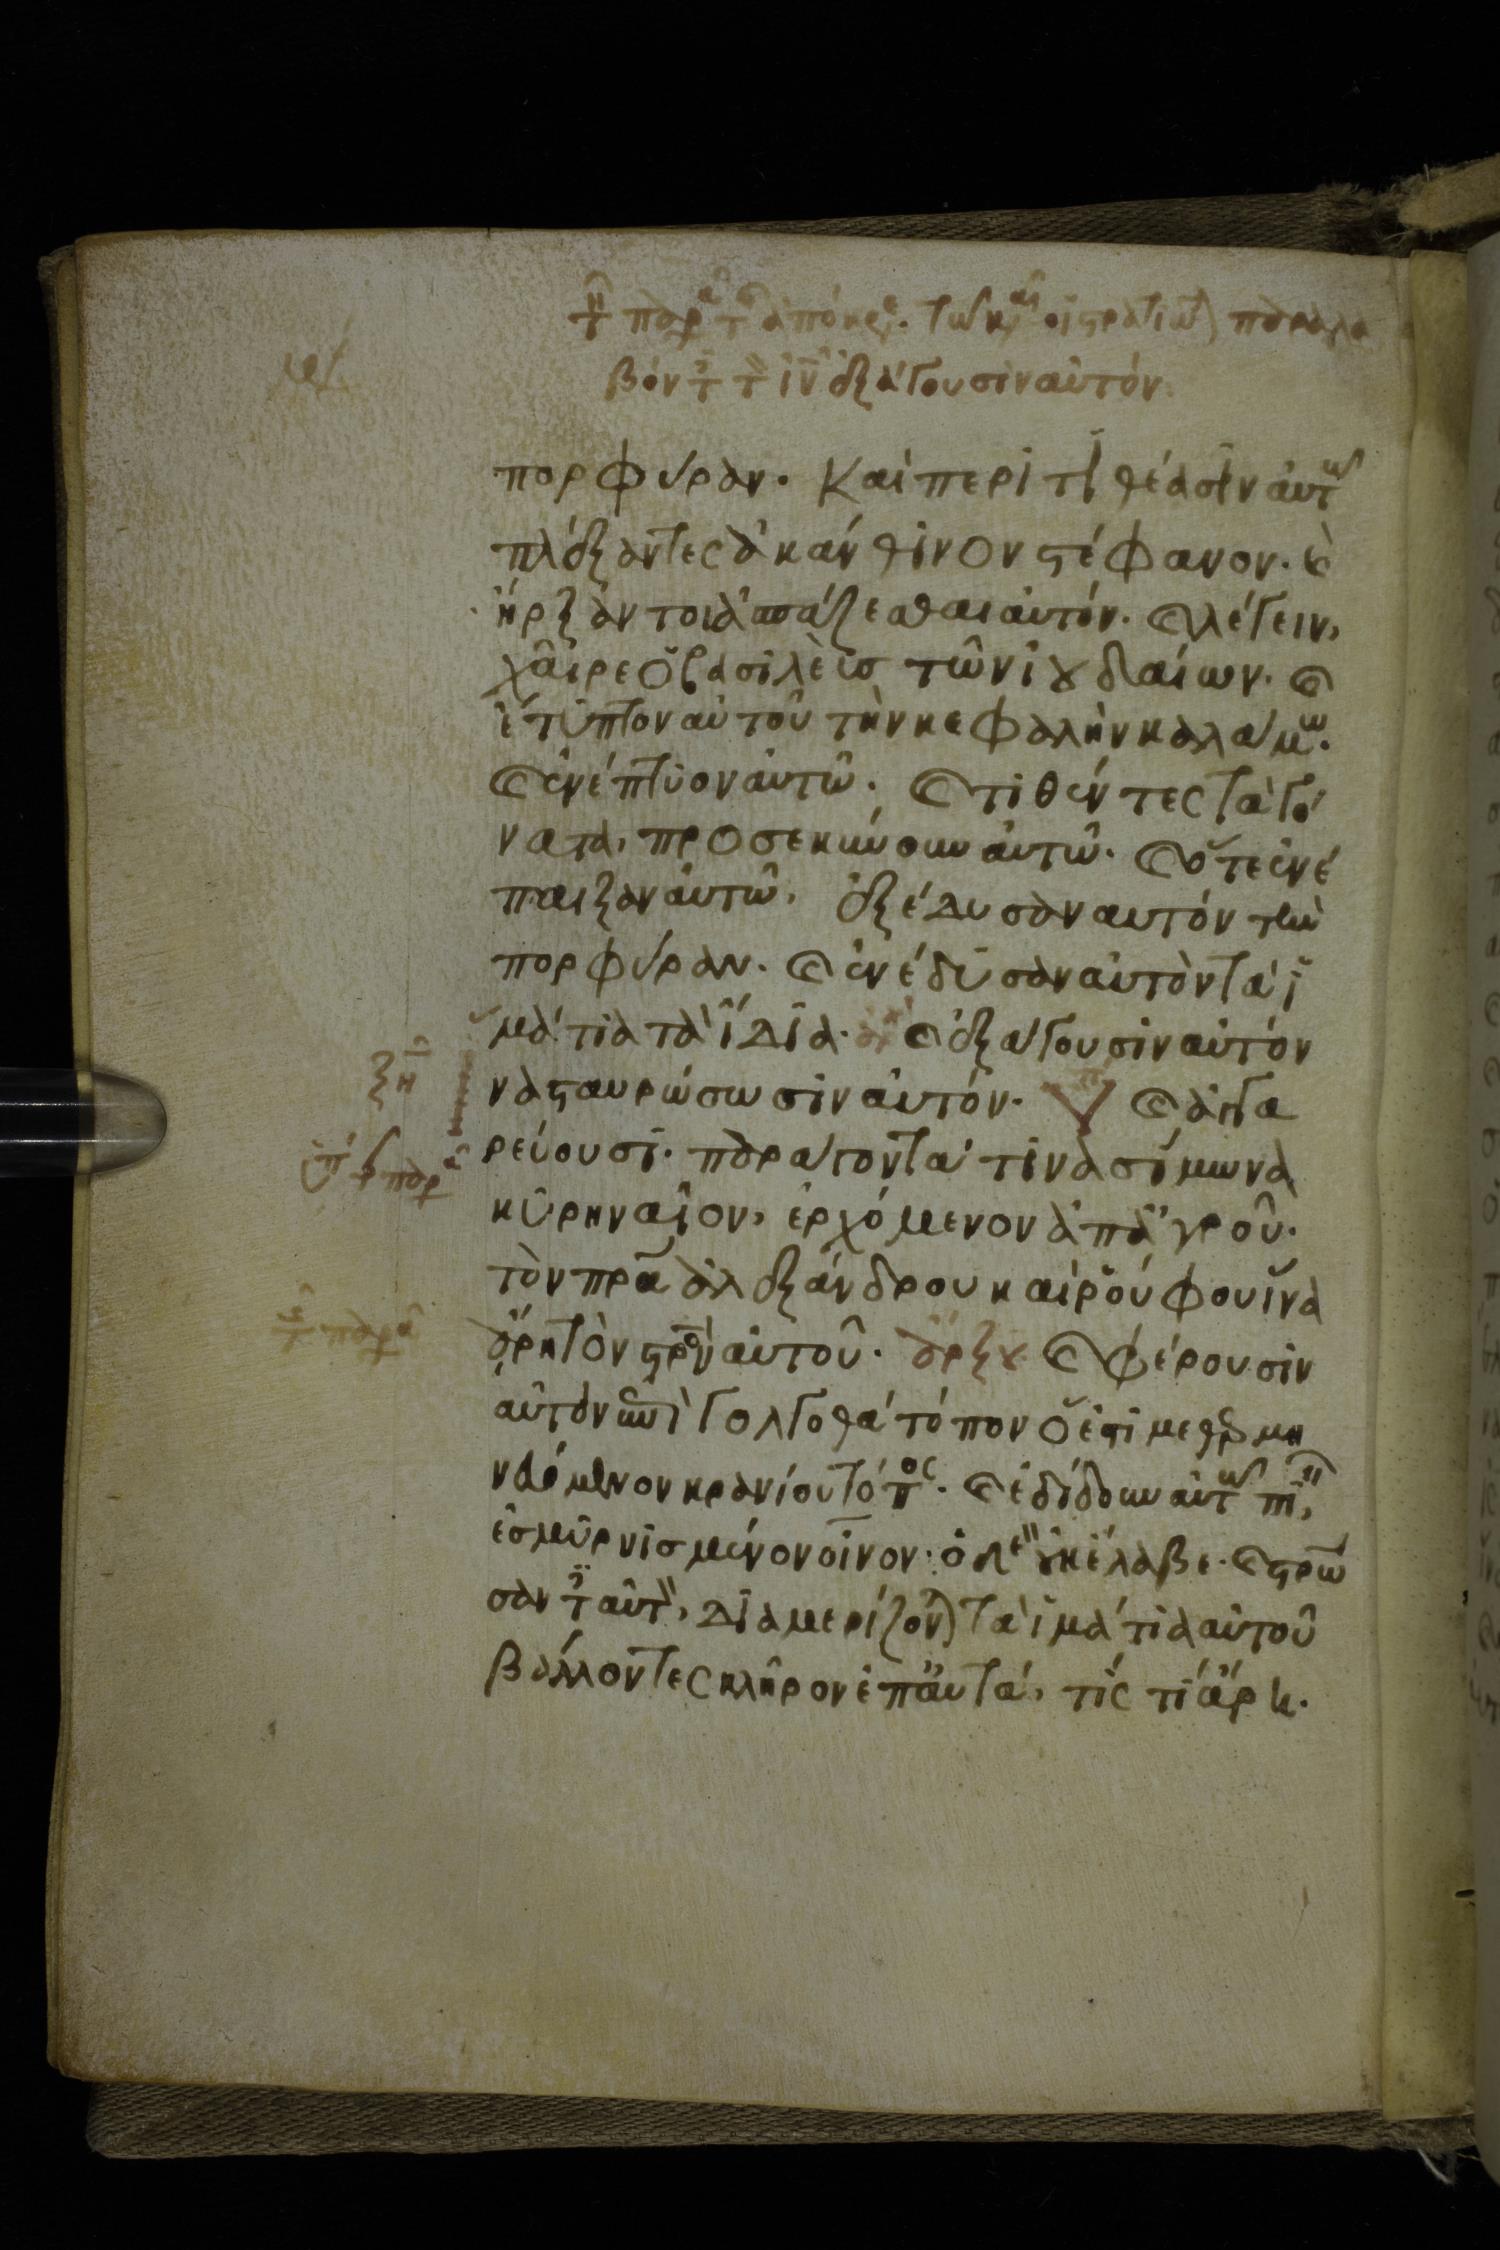 πορφύραν. Καὶ περιτιθέασιν αὐτῶ
πλέξαντες ἀκάνθινον στέφανον. καὶ
ἤρξαντο ἀσπάζεσθαι αὐτόν. καὶ λέγειν,
χαῖρε ὁ βασιλεὺς τῶν ἰουδαίων. καὶ
ἔτυπτον αὐτοῦ τὴν κεφαλὴν καλάμω.
καὶ ἐνέπτυον αὐτῶ. καὶ τιθέντες τὰ γό
νατα, προσεκύνουν αὐτῶ. καὶ ὅτε ἐνέ
παιξαν αὐτῶ, ἐξέδυσαν αὐτόν τὴν
πορφύραν. καὶ ἐνέδυσαν αὐτὸν τὰ ἱ
μάτια τὰ ἴδια. καὶ ἐξάγουσιν αὐτόν
να σταυρώσωσιν αὐτόν. καὶ ἀγγα
ρεύουσι. παράγοντα τινὰ σίμωνα
κυρηναῖον, ἐρχόμενον ἀπ' ἀγροῦ.
τὸν πρα ἀλεξάνδρου καὶ ῥούφου ἵνα
ἄρη τὸν στρον αὐτοῦ. ἄρξου καὶ φέρουσιν
αὐτὸν ἐπὶ γολγοθά τόπον ὅ ἐστι μεθερμη
νευόμενον κρανίου τόπος. καὶ ἐδίδουν αὐτῶ πιεῖν,
ἐσμυρνισμένον οἶνον. ὁ δὲ οὐκ ἔλαβε. καὶ στρώ
σαντες αὐτὸν, διαμερίζονται τὰ ἱμάτια αὐτοῦ
βάλλοντες κλῆρον ἐπ' αὐτά, τίς τί ἄρη.